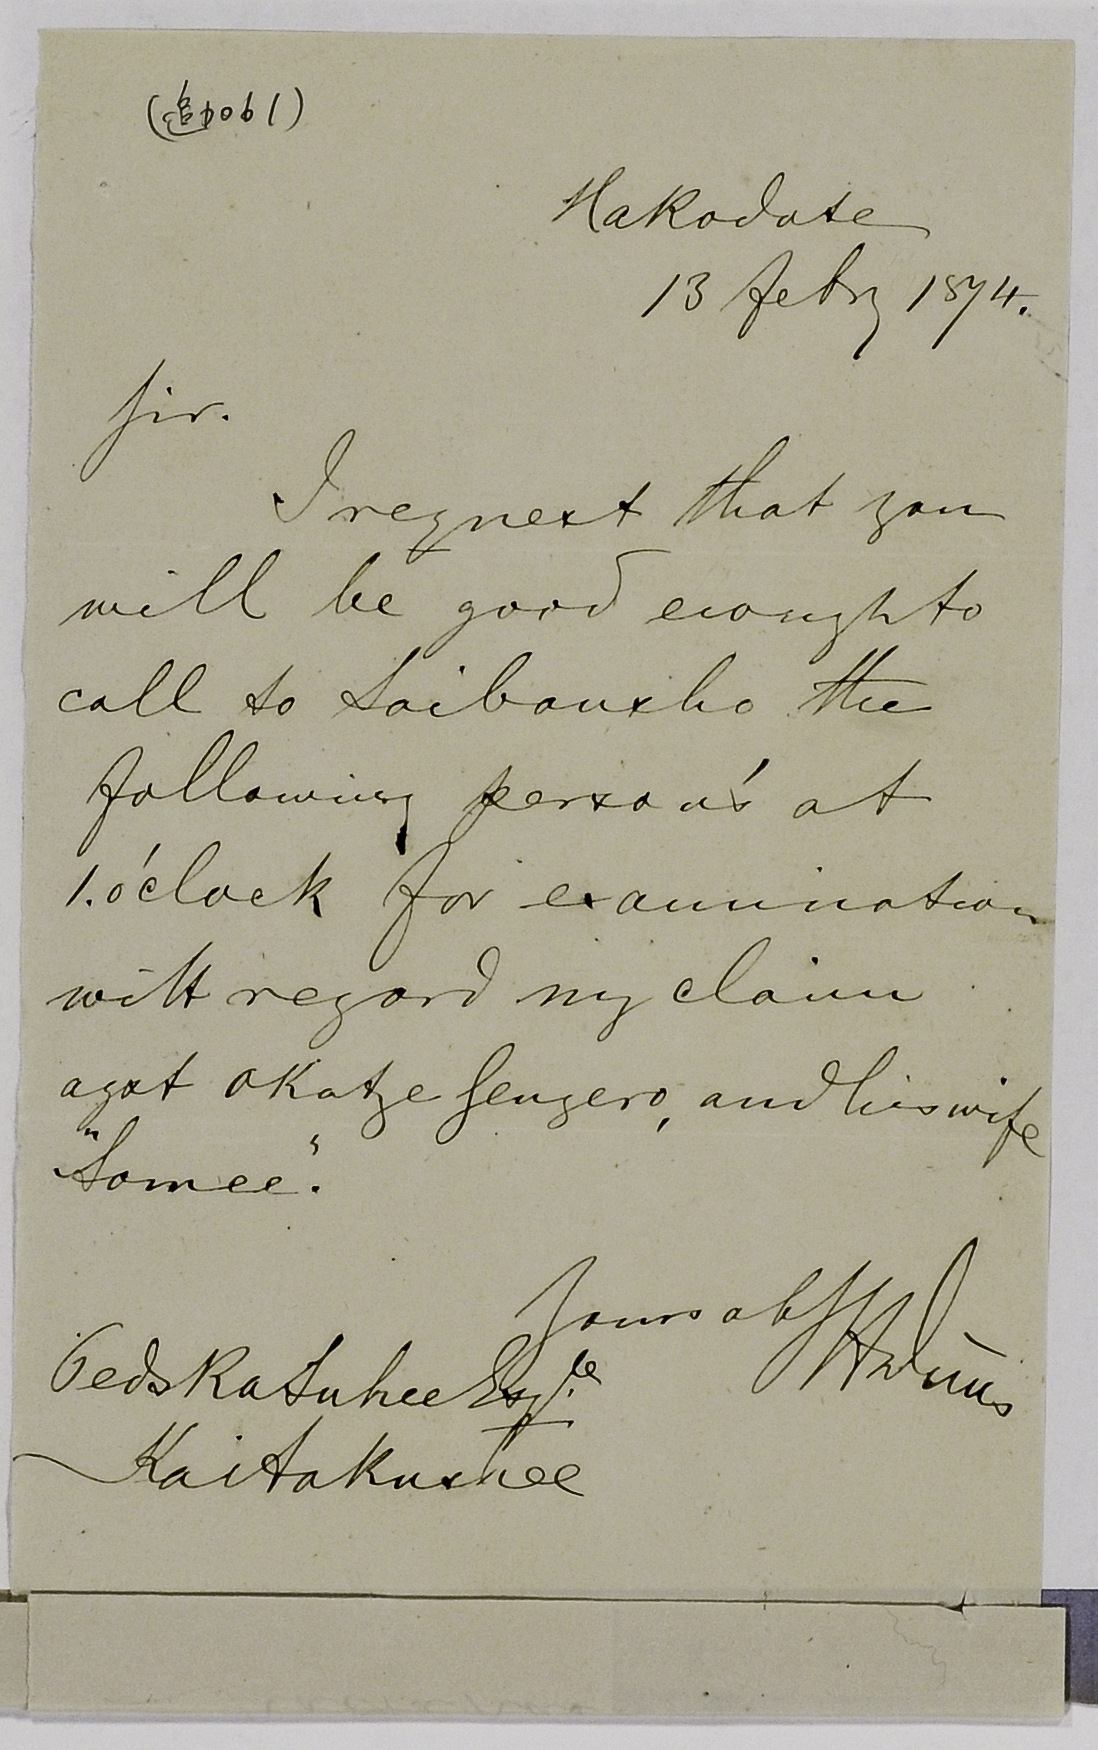 (追加061)
Hakodate
13 Febry 1874.
Sir.
I request that you
will be good enough to
call to Saibansho the
following person's at
1. o'clock for examination
with regard my claim
agst Okatze Gengero, and his wife
"Somee".
Yours obt
Kaitakushee